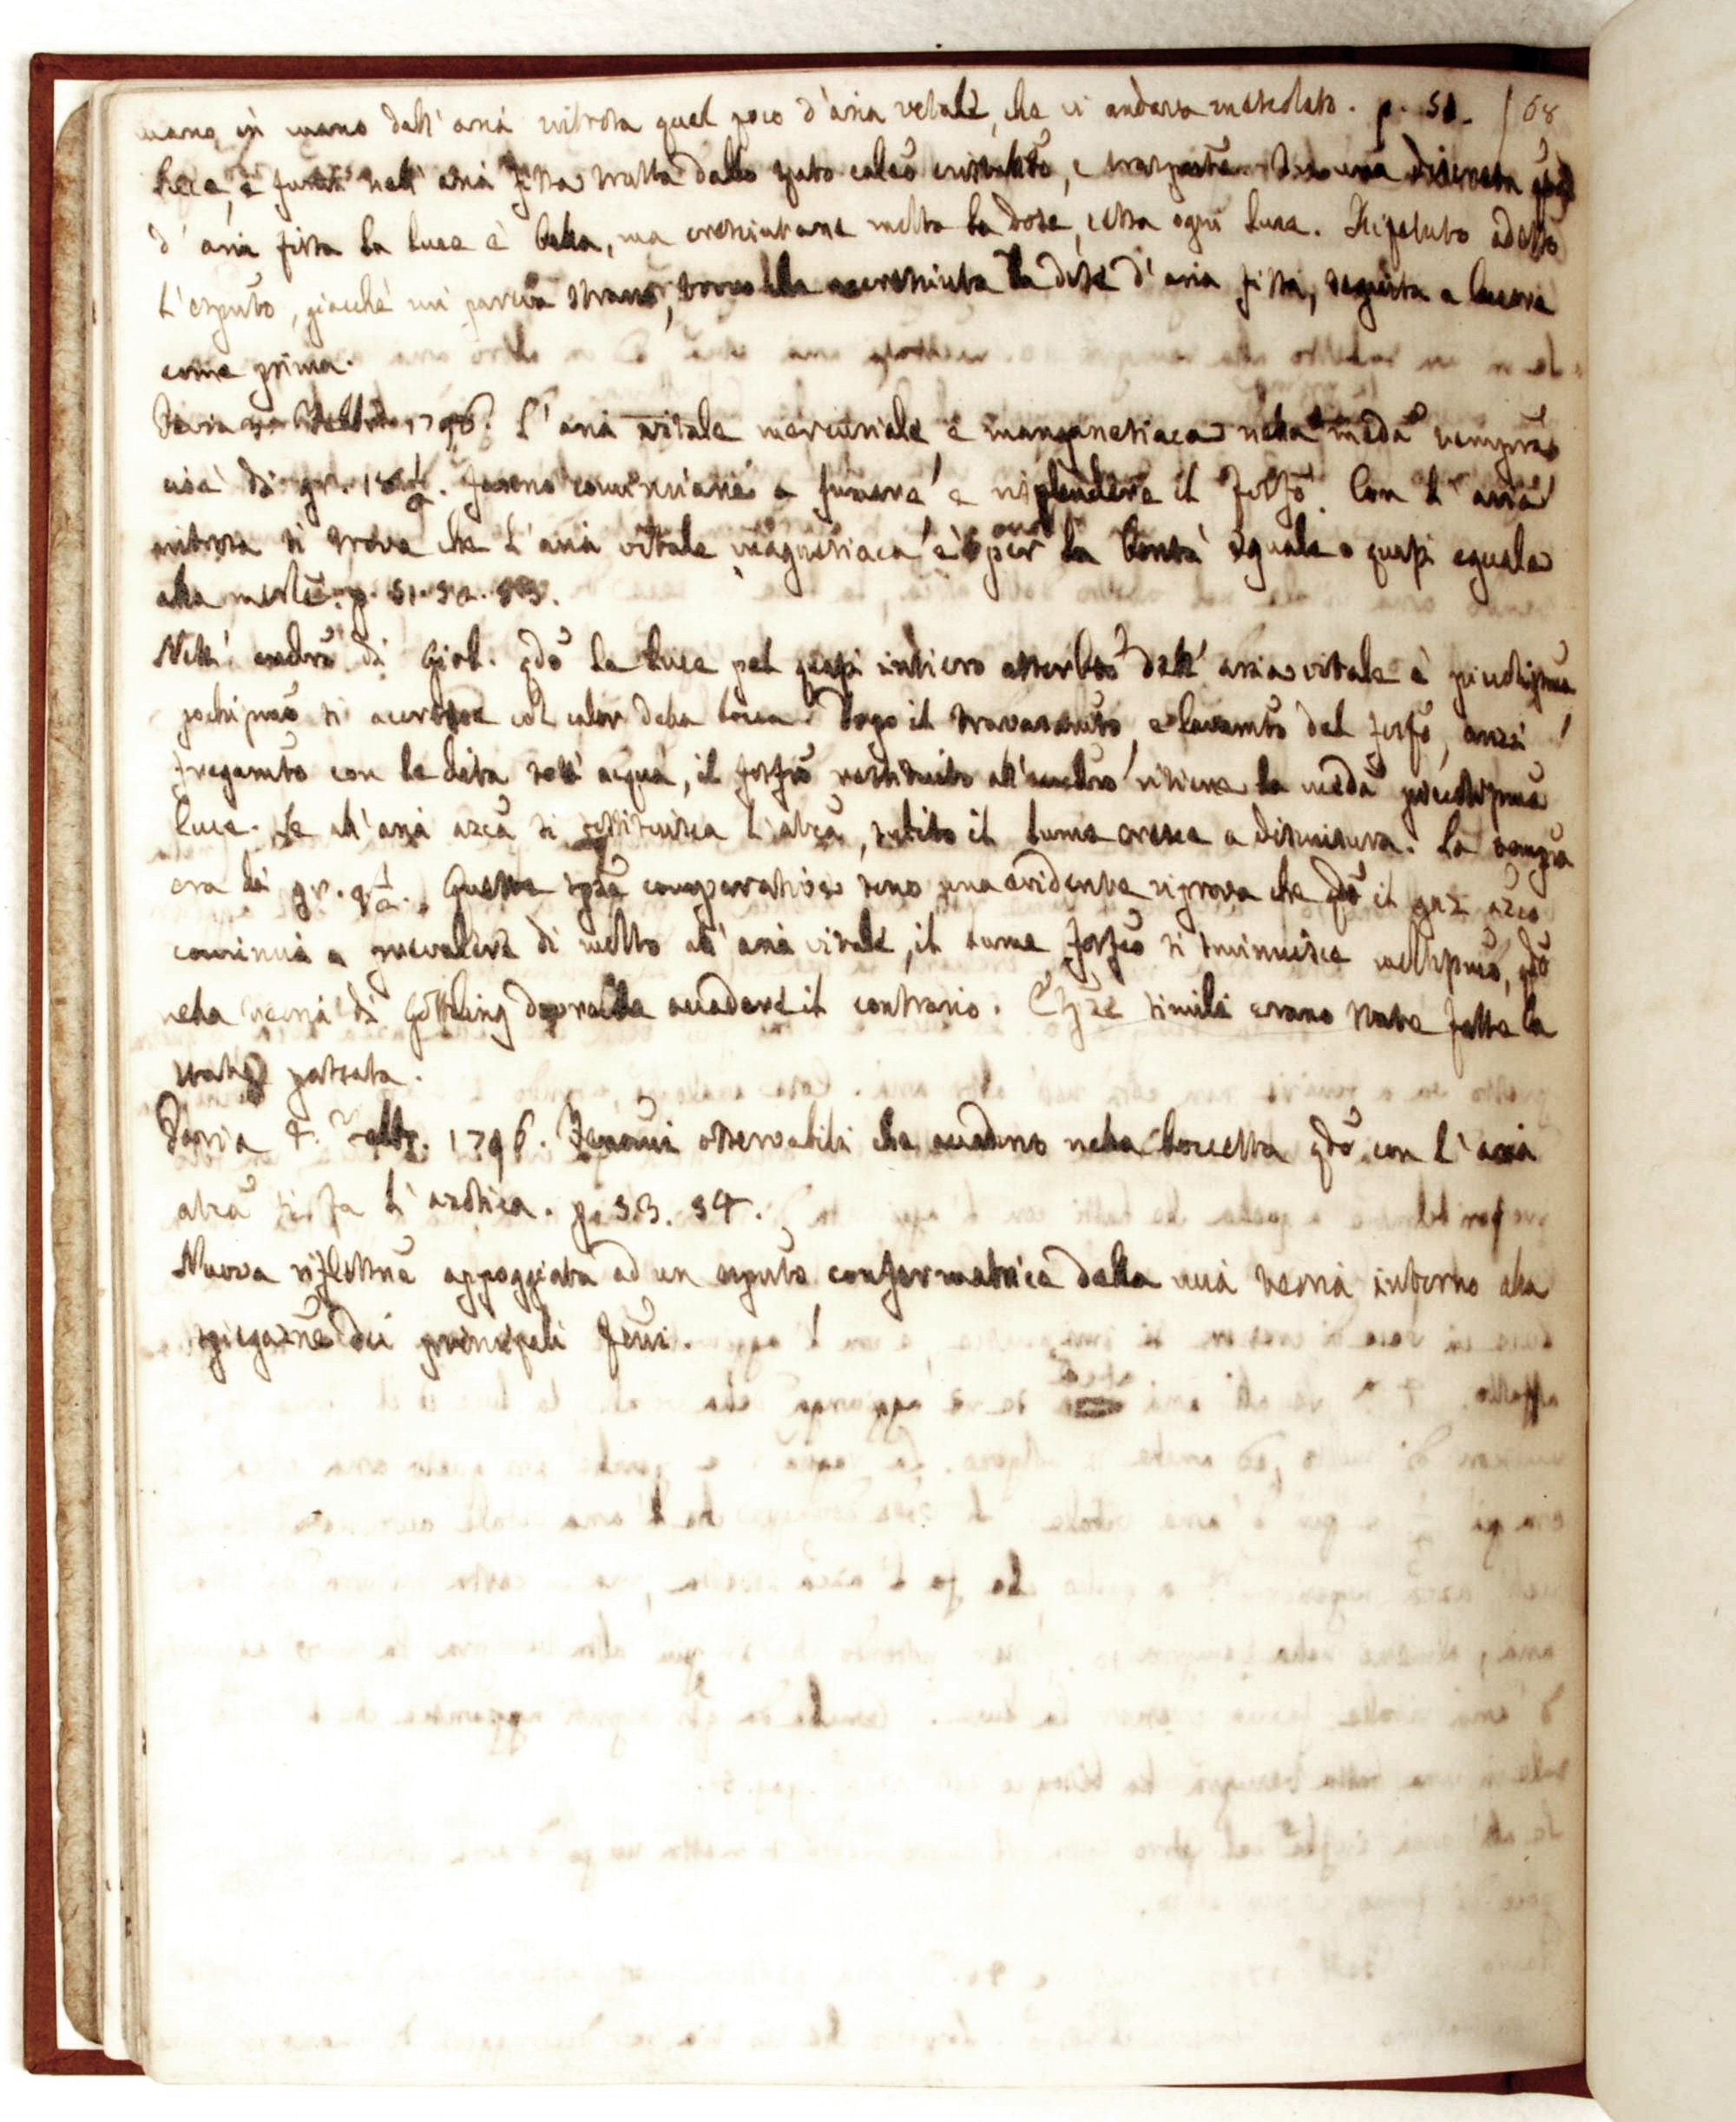 mano in mano dall'aria nitrosa quel poco d'aria vitale, che vi andava mescolato. p. 51. 68
Luce, e fumo nell'aria fissa tratta dallo spato calcō cristallō, e una discreta
d'aria fissa la luce è bella, ma cresciutane molto la dose, cessa ogni luce. Ripetuto adesso
l'esputo, giacchè mi pareva strano, trovo che accresciuta la dose d'aria fissa, seguita a lucere
come prima.
Pavia 1796. L'aria vitale mercuriale, e manganesiaca nella medā temprā
cioè di gr. 18 1/2. fanno cominciare a fumare e risplendere il fosfō. Con l'aria
nitrosa si trova che l'aria vitale magnesiaca è per la bontà eguale o quasi eguale
alla merlē. p. 51. 52. 53.
Nell' eudrō di Giob. qdō la luce pel quasi intiero assorbtō dell'aria vitale è picciolisma
pochismō si accresce col calor della bocca. Dopo il travasamtō, e lavamtō del fosfō, anzi
fregamtō con le dita sott'acqua, il fosfrō restituito all'eudrō ritiene la medā picciolisma
luce. Se all'aria azcā si sostituisca l'atcā, subito il lume cresce a dismisura. La tempra
era di gr. 9 1/2. Queste spzē comparative sono una evidente riprova che qdō il gaz azcō
comincia a prevalere di molto all'aria vitale, il lume fosfcō si sminuisce moltismō, qdō
nella teoria di Göttling dovrebbe accadere il contrario. Espzē simili erano state fatte la
state passata.
Pavia 4. 7mbr. 1796. Fenomi osservabili che accadono nella boccetta qdō con l'aria
atcā si fa l'azotica. p. 53. 54.
Nuova riflessnē appoggiata ad un esputō confermatrice della mia teoria intorno alla
spiegaznē dei principali feni.